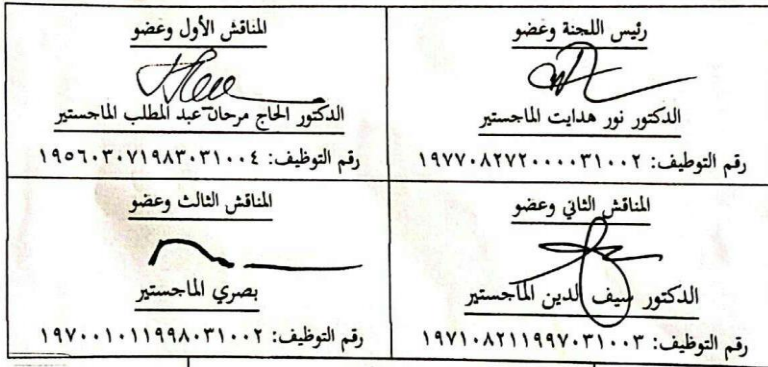 رئيس اللجنة وعضو
الدكتور نور هدايت الماجستير
رقم التوظيف: ١٩٧٧٠٨٢٧٢٠٠٠٠٣١٠٠٢
المناقش الأول وعضو
الدكتور الحاج مرحان عبد المطلب الماجستير
رقم التوظيف: ١٩٥٦٠٣٠٧١٩٨٣٠٣١٠٠٤
المناقش الثاني وعضو
الدكتور سيف الدين الماجستير
رقم التوظيف: ١٩٧١٠٨٢١١٩٩٧٠٣١٠٠٣
المناقش الثالث وعضو
بصري الماجستير
رقم التوظيف: ١٩٧٠٠١٠١١٩٩٨٠٣١٠٠٢